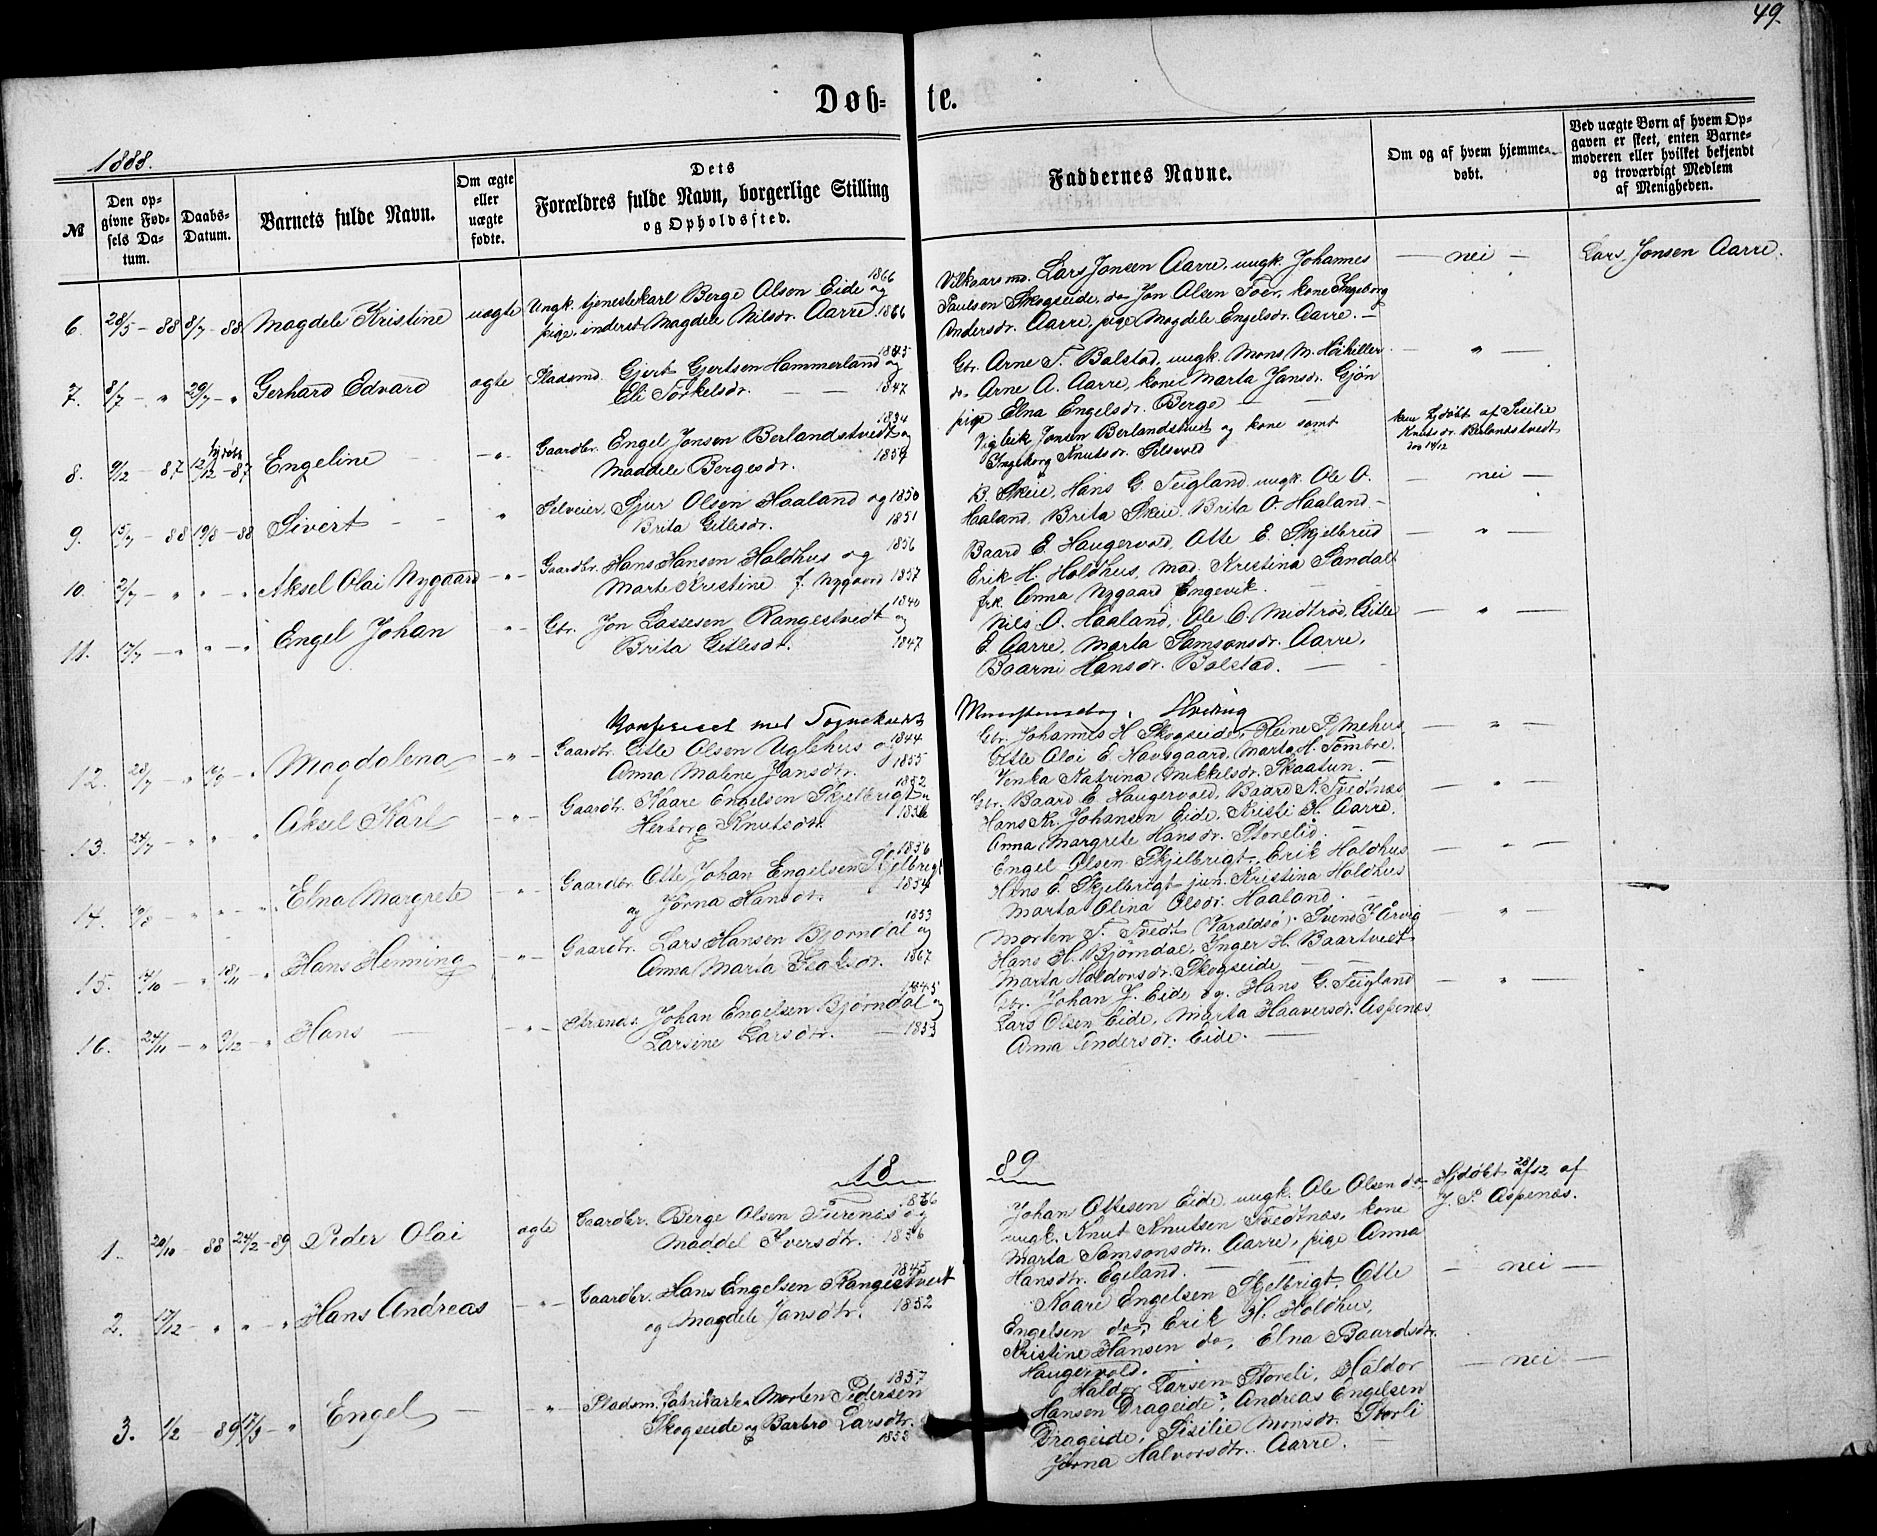 49.
Døb-te.
1888.
№
Den op-
givne Fød-
sels Da-
tum.
Daabs-
Datum.
Barnets fulde Navn.
Om ægte
eller
uægte
fødte.
Dets
Forældres fulde Navn, borgerlige Stilling
og Opholdssted.
Faddernes Navne.
Om og af hvem hjemme-
døbt.
Ved uægte Børn af hvem Op-
gaven er skeet, enten Barne-
moderen eller hvilket bekjendt
og troværdigt Medlem
af Menigheden.
6. 28/5 - 88 8/7 - 88 Magdele Kristine uægte
Ungk. tjenestekarl Berge Olsen Eide 1866 og
pige, inderst Magdele Nilsdr. Aarre. 1866
Vilkaarsmd. Lars Jonsen Aarre, ungk. Johannes
Paulsen Skogseide, do Jon Olsen Toer, kone Ingeborg
Andersdr. Aarre, pige Magdele Engelsdr. Aarre. -
- nei -
Lars Jonsen Aarre.
7. 8/7 - " 29/7 - " Gerhard Edvard ægte
Pladsmd. Gjert Gjertsen Hammerland og 1845
Eli Torkelsdr. - - 1847
Gbr. Arne T. Balstad, ungk. Mons M.
do. Arne A. Aarre, kone Marta Jansdr. Gjøn
pige Elna Engelsdr. Berge
- " -
8. 9/2 - 87 12/12 - 87 Engeline - " -
Gaardbr. Engel Jonsen Berlandstvedt og 1834
Maddele Bergesdr. 1854
Vigleik Jonsen Berlandstvedt og kone samt
Ingeborg Knutsdr. Selsvold
hjdøbt af Sisilie
Knutsdr. Berlandstvedt
9. 15/7 - 88 19/8 - 88 Sivert - - "
Selveier Sjur Olsen Haaland og 1850
Brita Gitlesdr. 1851
B. Skeie, Hans G. Teigland, ungk. Ole O.
Haaland, Brita Skeie, Brita O. Haaland -
- nei -
10. 2/7 - " " - " Aksel Olai Nygaard - " -
Gaardbr. Hans Hansen Holdhus og 1856
Marte Kristine f. Nygaard 1857
Baard E. Haugervold, Otte E. Skjelbrud
Erik H. Holdhus, Mad. Kristina Sandalt
frk. Anna Nygaard Engevik.
- " -
11. 17/7 - " " - " Engel Johan " -
Gbr. Jon Lassesen Rangestvedt og 1840
Brita Gitlesdr. 1847
Nils O. Haaland, Ole O. Midtrød, Gitle
J. Aarre, Marta Samsonsdr. Aarre,
Baarni Hansdr. Balstad. -
- " -
Konfereret med Sogne
12. 28/7 - " 19/8 - " Magdalena - " -
Gaardbr. Gitle Olsen Uglehus og 1844
Anna Malene Jansdtr. 1855
Gbr. Johannes H Skogseide, Heine P. Mehus
Gitle Olai E. Havsgaard, Marta H. Tombre,
Venka Katrina Mikkelsdr. Skaatun. -
- " -
13. 24/7 - " " - " Aksel Karl - " -
Gaardbr. Kaare Engelsen Skjelbrigt og 1852
Herborg Knutsdtr. 1856
Gbr. Baard E. Haugervold, Baard N. Tvedtnæs
Hans Kr. Johansen Eide, Kristi H. Aarre.
Anna Margrete Hansdr. Storelid.
- " -
14. - " " - " Elna Margrete - " -
Gaardbr. Otte Johan Engelsen Skjelbrigt 1856
og Jorna Hansdtr. 1854
Engel Olsen Skjelbrigt, Erik Holdhus
Hans E. Skjelbrigt jun. Kristina Holdhus
Marta Olina Olsdr. Haaland. -
- " -
15. 14/10 - " 18/11 - " Hans Henning - " -
Gaardbr. Lars Hansen Bjørndal og 1853
Anna Marta Isaksdr. 1867
Morten T. Tvedt (Varaldsø). Svend I. Årvig
Hans H. Bjørndal, Inger H. Baartveit
Marta Haldorsdr. Skogseide
- " -
16. 24/11 - " 9/12 - " Hans - " -
Strands. Johan Engelsen Bjørndal og 1845
Larsine Larsdtr. - 1853
Gbr. Johan J. Eide og Hans G. Teigland
Lars Olsen Eide, Marta Haaversdr. Aspenæs
Anna Andersdr. Eide. -
- " -
1889
1. 20/10 - 88 24/2 - 89 Peder Olai ægte
Gaardbr. Berge Olsen Furenæs og 1856
Maddel Iversdtr. 1856
Johan Ottesen Eide, ungk. Ole Olsen do
ungk. Knut Knutsen Tvedtnæs, kone
Marta Samsonsdtr. Aarre, pige Anna
Hansdtr. Egeland. - -
Hjdøbt 28/12 af
J. P. Aspenæs.
2. 17/12 - " " - " Hans Andreas - " -
Gaardbr. Hans Engelsen Rangestvert 1845
og Magdele Jansdtr. 1852
Kaare Engelsen Skjelbrigt, Otte
Engelsen do, Erik H. Holdhus,
Kristine Hansen do, Elna Baardsdtr.
Haugervold.
- nei -
3. 1/2 - 89 17/3 - " Engel - - " -
Pladsm., Fabrikarb. Morten Pedersen 1857
Skogseide og Barbro Larsdtr. 1855
Haldor Larsen Storeli, Haldor
Hansen Drageide, Andreas Engelsen
Drageide, Sisilie Monsdr. Storli
Jorna Halvorsdtr. Aarre.
- nei -